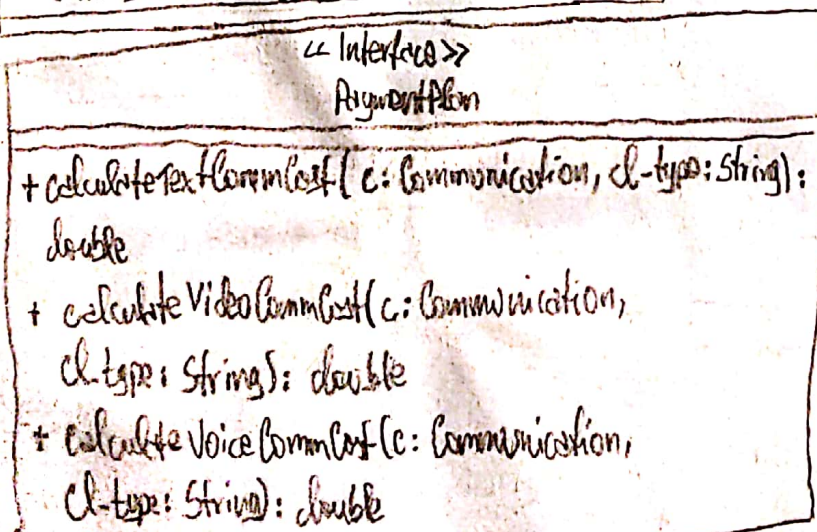 << Interface >>
PaymentPlan
+ calculateTextCommCost( c: Communication, cl-type: String):
double
+ calculateVideoCommCost(c: Communication,
cl-type: String): double
+ calculateVoiceCommCost(c: Communication,
cl-type: String): double